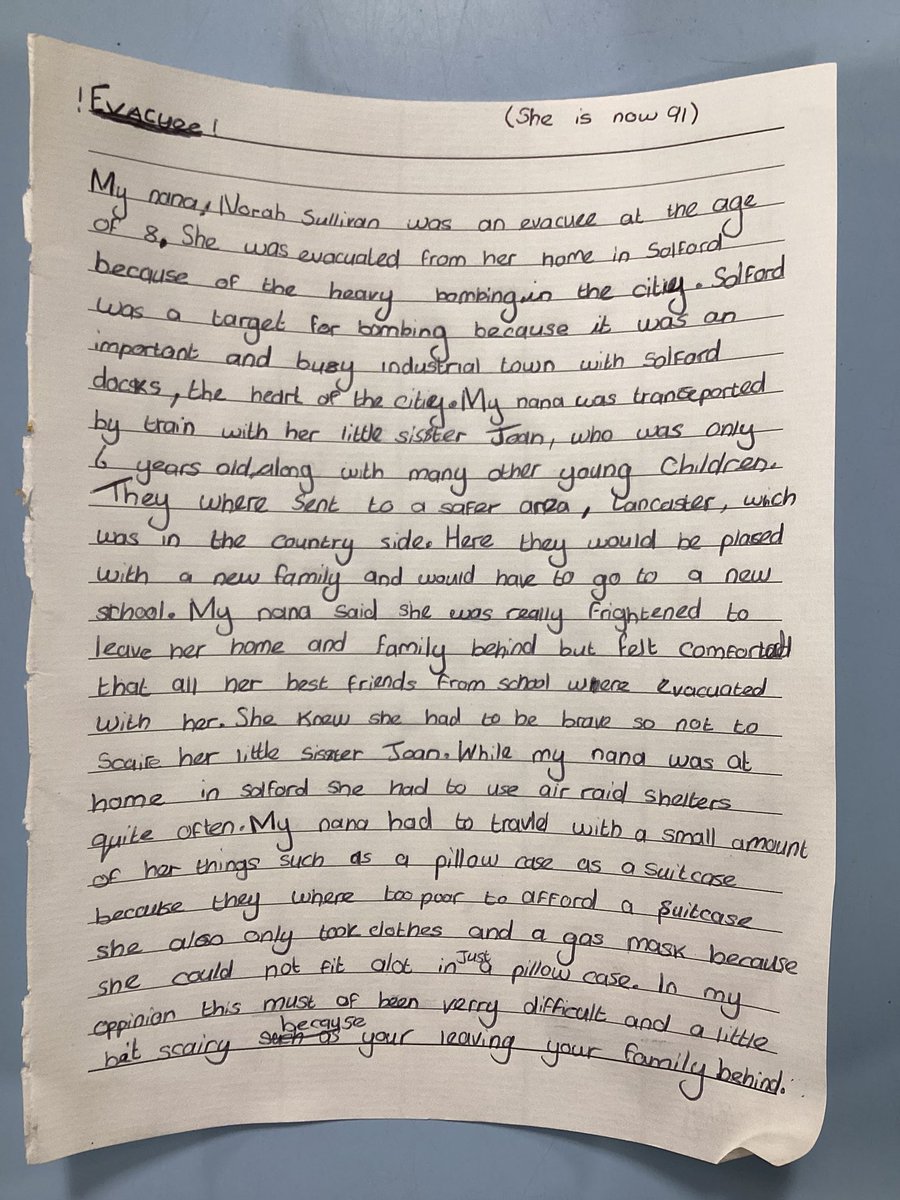 !Evacuee! (She is now 91)
My nana, Norah Sullivan was an evacuee at the age
of 8. She was evacuated from her home in Salford
because of the heavy bombing in the citiy. Salford
was a target for bombing because it was an
important and busy industrial town with salford
docks, the heart of the citiy. My nana was transported
by train with her little sisster Joan, who was only
6 years old, along with many other young Children.
They where sent to a safer area, Lancaster, wich
was in the country side. Here they would be plased
with a new family and would have to go to a new
school. My nana said she was really frightened to
leave her home and family behind but felt comforted
that all her best friends from school where evacuated
with her. She knew she had to be brave so not to
scaire her little sisster Joan. While my nana was at
home in salford she had to use air raid shelters
quite often. My nana had to travld with a small amount
of her things such as a pillow case as a suitcase
because they where too poor to afford a suitcase
she also only took clothes and a gas mask because
she could not fit alot in Just a pillow case. In my
oppinian this must of been verry difficult and a little
bit scairy such as because your leaving your family behind.